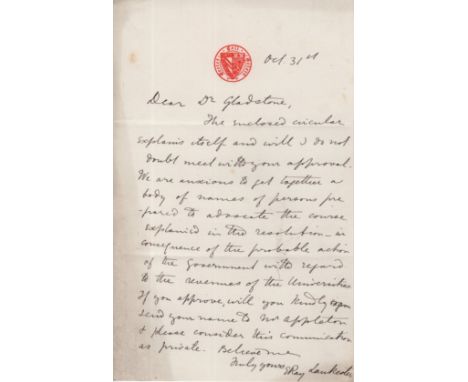 Oct 31st
Dear Dr Gladstone,
The enclosed circular
explains itself and will I do not
doubt meet with your approval.
We are anxious to get together a
body of names of persons pre-
-pared to advocate the course
explained in the resolution - in
consequence of the probable action
of the Government with regard
to the revenues of the Universities
If you approve, will you kindly
send your name to Mr Appleton
& please consider this communication
as private. Believe me
Truly yours
E Ray Lankester